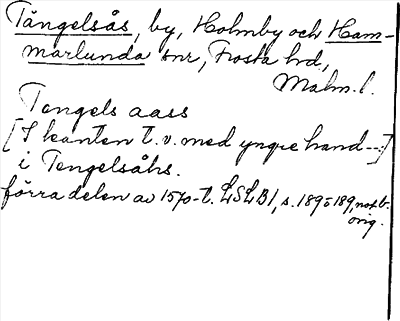 Tängelsås, by, Holmby och Ham-
marlunda snr, Frosta hd,
Malm. l.
Tengels aass
[I kanten t.v. med yngre hand --:]
i Tengelsåhs.
förra delen av 1570-t. LSLB1, s. 189 o 189, not b.
orig.